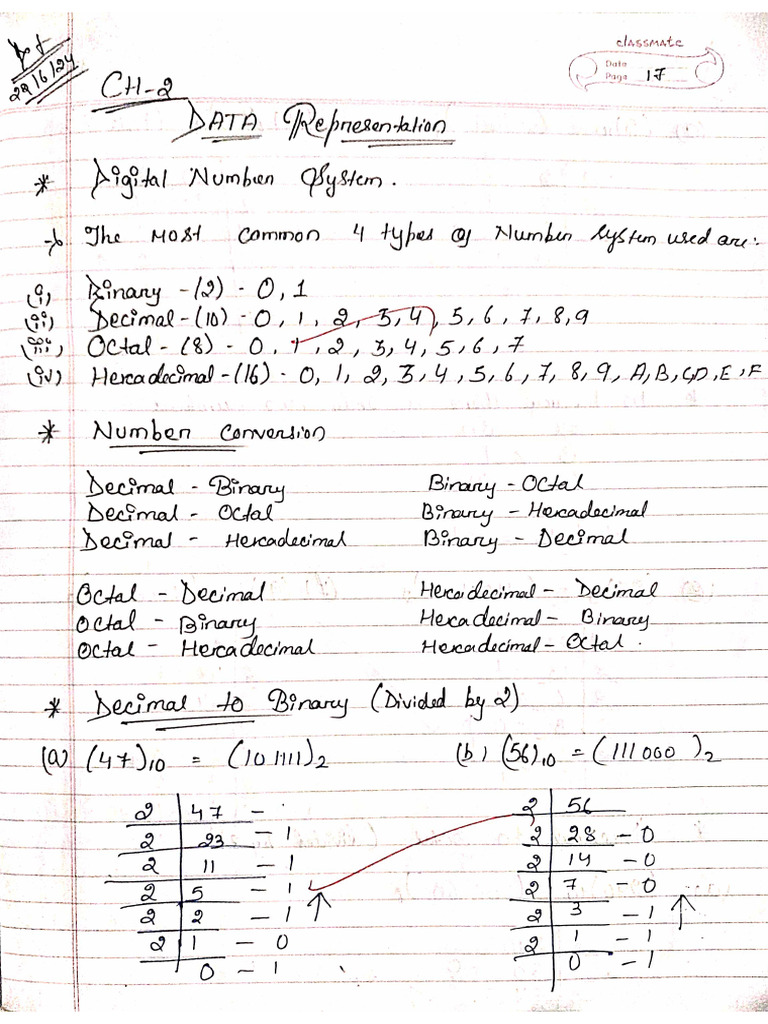 classmate
Date
Page 17
29/6/24
CH-2
DATA Representation
* Digital Number System.
→ The most common 4 types of Number System used are:-
(i) Binary - (2) - 0, 1
(ii) Decimal - (10) - 0, 1, 2, 3, 4, 5, 6, 7, 8, 9
(iii) Octal - (8) - 0, 1, 2, 3, 4, 5, 6, 7
(iv) Hexadecimal - (16) - 0, 1, 2, 3, 4, 5, 6, 7, 8, 9, A, B, C, D, E, F
* Number Conversion
Decimal - Binary Binary - Octal
Decimal - Octal Binary - Hexadecimal
Decimal - Hexadecimal Binary - Decimal
Octal - Decimal Hexadecimal - Decimal
Octal - Binary Hexadecimal - Binary
Octal - Hexadecimal Hexadecimal - Octal.
* Decimal to Binary (Divided by 2)
(a) (47)10 = (101111)2 (b) (56)10 = (111000)2
2 | 47 - 2 | 56
2 | 23 - 1 2 | 28 - 0
2 | 11 - 1 2 | 14 - 0
2 | 5 - 1 ↑ 2 | 7 - 0 ↑
2 | 2 - 1 2 | 3 - 1
2 | 1 - 0 2 | 1 - 1
0 - 1 0 - 1